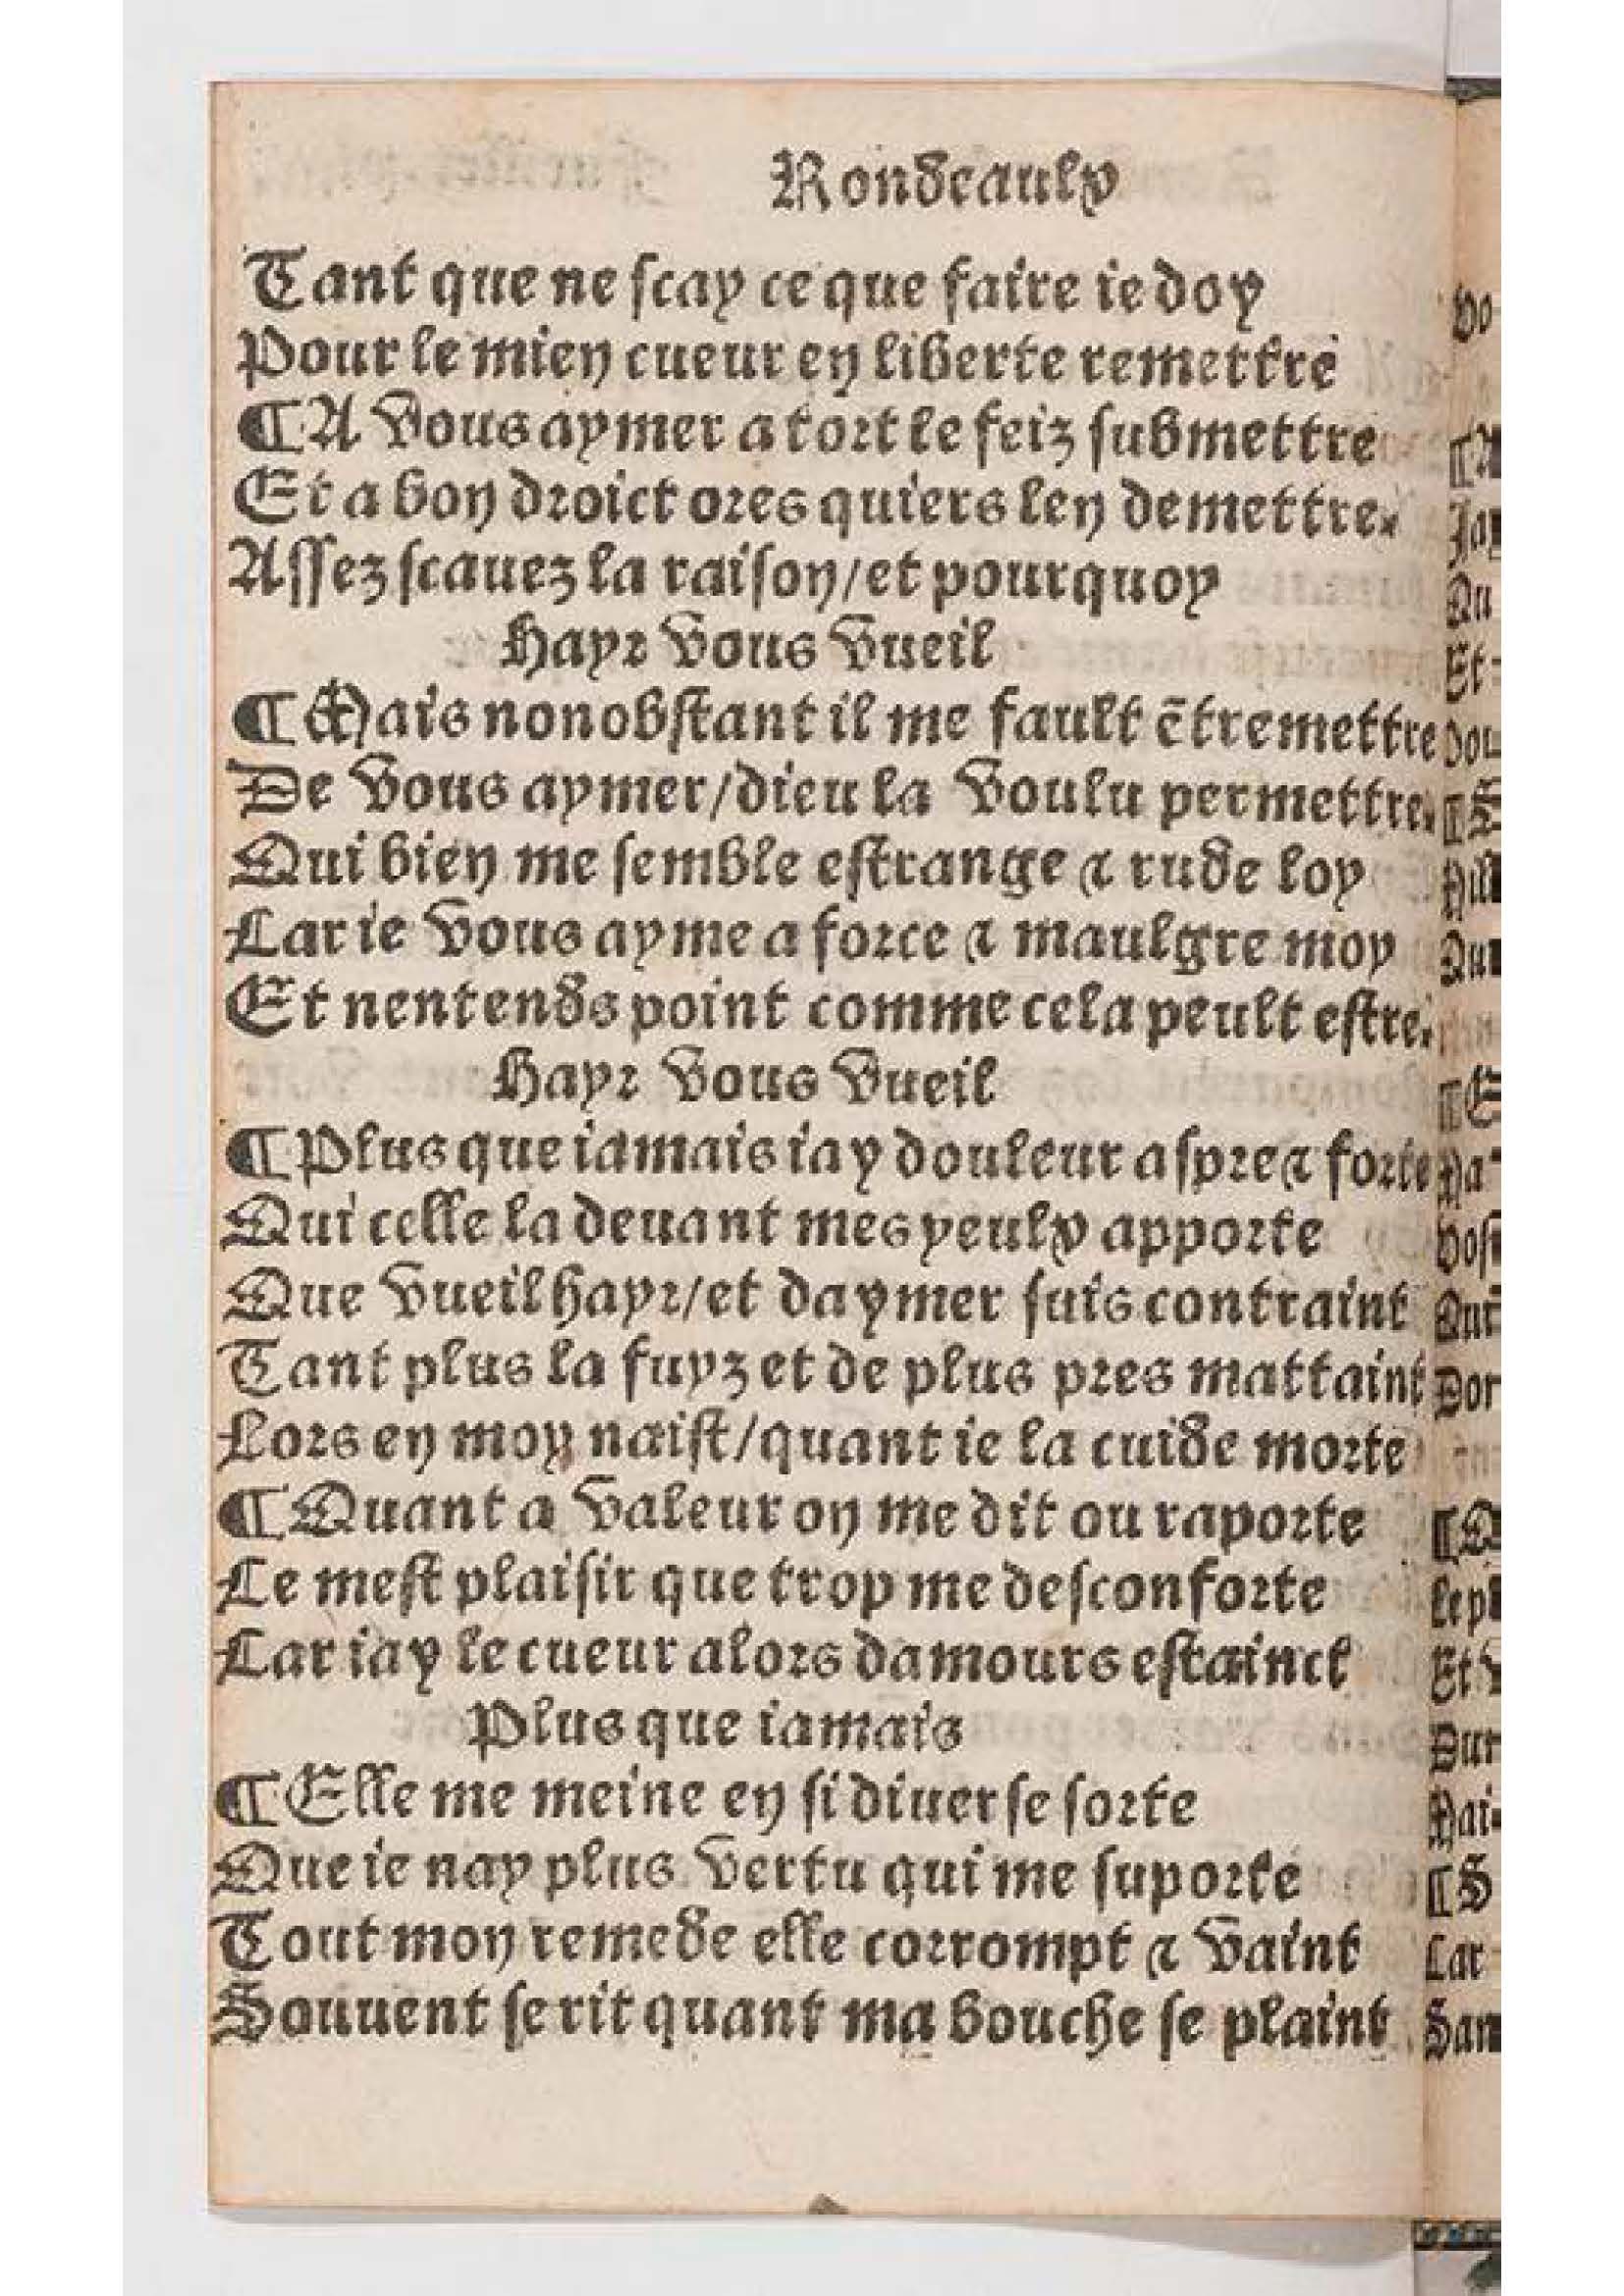 Rondeaulx
Tant que ne scay ce que faire ie doy
Pour le mien cueur en liberte remettre
¶A vous aymer a tort le feiz submettre
Et a bon droict ores quiers len demettre.
Assez scauez la raison/et pourquoy
Hayr vous vueil
¶Mais nonobstant il me fault ẽtremettre
De vous aymer/dieu la voulu permettre.
Qui bien me semble estrange & rude loy
Car ie vous ayme a force & maulgre moy
Et nentends point comme cela peult estre.
Hayr vous vueil
¶Plus que iamais iay douleur aspre & forte
Qui celle la deuant mes yeulx apporte
Que vueil hayr/et daymer suis contraint
Tant plus la fuyz et de plus pres mattaint
Lors en moy naist/quant ie la cuide morte
¶Quant a valeur on me dit ou raporte
Ce mest plaisir que trop me desconforte
Car iay le cueur alors damours estainct
Plus que iamais
¶Elle me meine en si diuerse sorte
Que ie nay plus vertu qui me suporte
Tout mon remede elle corrompt & vaint
Souuent se rit quant ma bouche se plaint